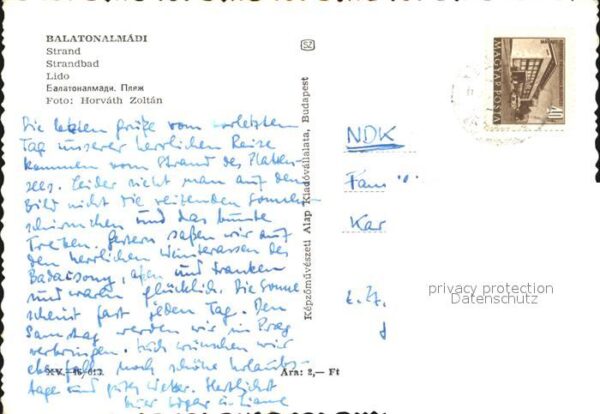 BALATONALMÁDI
Strand
Strandbad
Lido
Балатоналмади. Пляж
Foto: Horváth Zoltán
Die letzten Grüße vom vorletzten
Tag unserer herrlichen Reise
kommen vom Strand des Platten-
sees. Leider sieht man auf dem
Bild nicht die reizenden Sonnen-
schirmchen und das bunte
Treiben. Gestern saßen wir auf
den herrlichen Weinterrassen des
Badacsony, aßen und tranken
und waren glücklich. Die Sonne
scheint fast jeden Tag. Den
Samstag werden wir in Prag
verbringen. Euch wünschen wir
ebenfalls noch schöne Urlaubs-
tage und gutes Wetter. Herzlichst
XV.
Ára: 2,— Ft
SZ
Képzőművészeti Alap Kiadóvállalata, Budapest
MAGYAR POSTA
40
NDK
Fam
Kar
privacy protection
Datenschutz